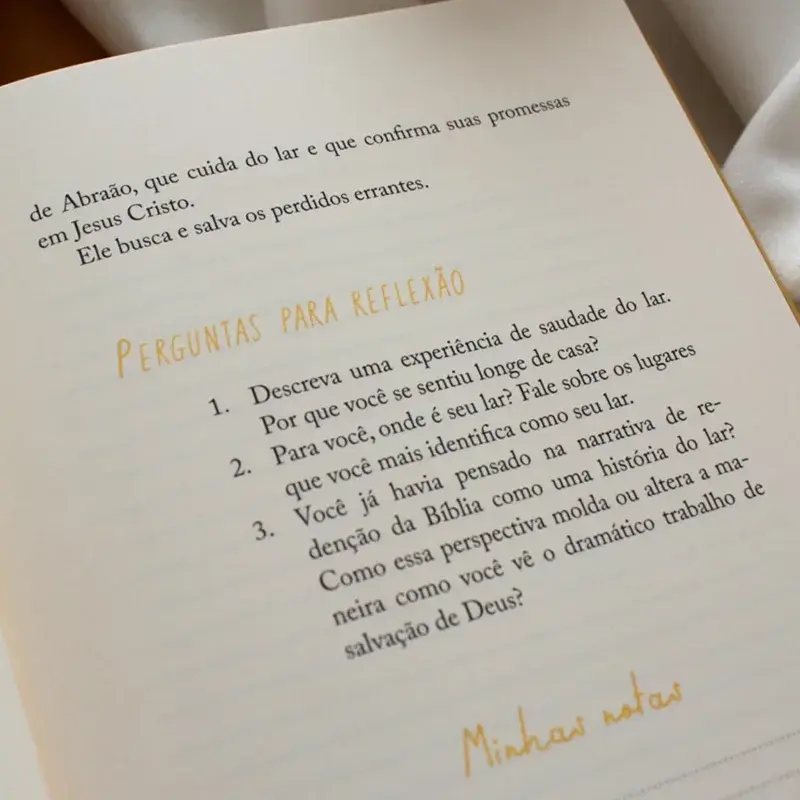 de Abraão, que cuida do lar e que confirma suas promessas
em Jesus Cristo.
Ele busca e salva os perdidos errantes.
PERGUNTAS PARA REFLEXÃO
1. Descreva uma experiência de saudade do lar.
Por que você se sentiu longe de casa?
2. Para você, onde é seu lar? Fale sobre os lugares
que você mais identifica como seu lar.
3. Você já havia pensado na narrativa de re-
denção da Bíblia como uma história do lar?
Como essa perspectiva molda ou altera a ma-
neira como você vê o dramático trabalho de
salvação de Deus?
Minhas notas